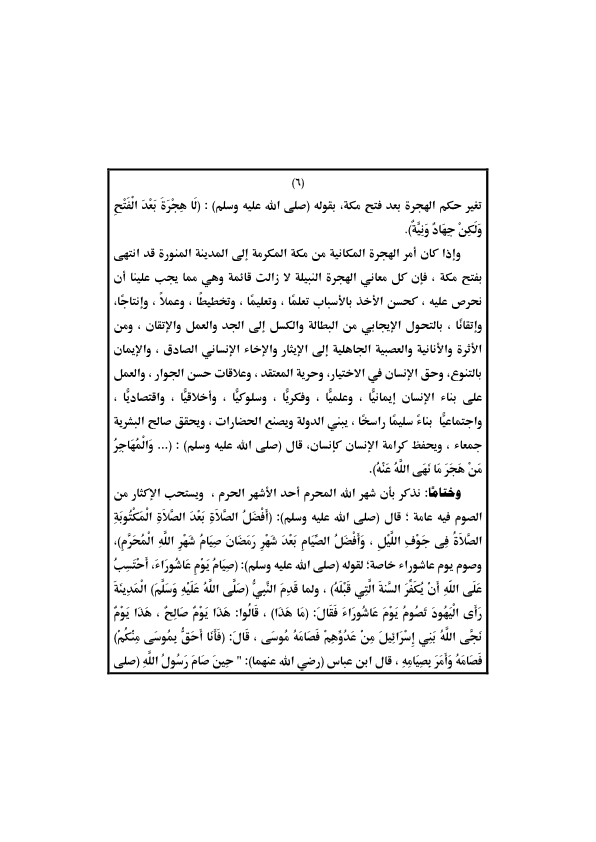 (٦)
تغير حكم الهجرة بعد فتح مكة، بقوله (صلى الله عليه وسلم) : (لَا هِجْرَةَ بَعْدَ الْفَتْحِ
وَلَكِنْ جِهَادٌ وَنِيَّةٌ).
وإذا كان أمر الهجرة المكانية من مكة المكرمة إلى المدينة المنورة قد انتهى
بفتح مكة ، فإن كل معاني الهجرة النبيلة لا زالت قائمة وهي مما يجب علينا أن
نحرص عليه ، كحسن الأخذ بالأسباب تعلمًا ، وتعليمًا ، وتخطيطًا ، وعملاً ، وإنتاجًا،
وإتقانًا ، بالتحول الإيجابي من البطالة والكسل إلى الجد والعمل والإتقان ، ومن
الأثرة والأنانية والعصبية الجاهلية إلى الإيثار والإخاء الإنساني الصادق ، والإيمان
بالتنوع، وحق الإنسان في الاختيار، وحرية المعتقد ، وعلاقات حسن الجوار ، والعمل
على بناء الإنسان إيمانيًّا ، وعلميًّا ، وفكريًّا ، وسلوكيًّا ، وأخلاقيًّا ، واقتصاديًّا ،
واجتماعيًّا بناءً سليمًا راسخًا ، يبني الدولة ويصنع الحضارات ، ويحقق صالح البشرية
جمعاء ، ويحفظ كرامة الإنسان كإنسان، قال (صلى الله عليه وسلم) : (... وَالْمُهَاجِرُ
مَنْ هَجَرَ مَا نَهَى اللَّهُ عَنْهُ).
وَختامًا: نذكر بأن شهر الله المحرم أحد الأشهر الحرم ، ويستحب الإكثار من
الصوم فيه عامة ؛ قال (صلى الله عليه وسلم): (أَفْضَلُ الصَّلاَةِ بَعْدَ الصَّلاَةِ الْمَكْتُوبَةِ
الصَّلاَةُ فِى جَوْفِ اللَّيْلِ ، وَأَفْضَلُ الصِّيَامِ بَعْدَ شَهْرِ رَمَضَانَ صِيَامُ شَهْرِ اللَّهِ الْمُحَرَّمِ)،
وصوم يوم عاشوراء خاصة؛ لقوله (صلى الله عليه وسلم): (صِيَامُ يَوْمِ عَاشُورَاءَ، أَحْتَسِبُ
عَلَى اللَّهِ أَنْ يُكَفِّرَ السَّنَةَ الَّتِي قَبْلَهُ) ، ولما قَدِمَ النَّبِيُّ (صَلَّى اللَّهُ عَلَيْهِ وَسَلَّمَ) الْمَدِينَةَ
رَأَى الْيَهُودَ تَصُومُ يَوْمَ عَاشُورَاءَ فَقَالَ: (مَا هَذَا) ، قَالُوا: هَذَا يَوْمٌ صَالِحٌ ، هَذَا يَوْمٌ
نَجَّى اللَّهُ بَنِي إِسْرَائِيلَ مِنْ عَدُوِّهِمْ فَصَامَهُ مُوسَى ، قَالَ: (فَأَنَا أَحَقُّ بِمُوسَى مِنْكُمْ)
فَصَامَهُ وَأَمَرَ بِصِيَامِهِ ، قال ابن عباس (رضي الله عنهما): " حِينَ صَامَ رَسُولُ اللَّهِ (صلى